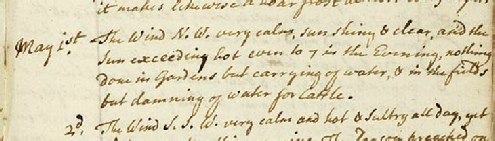 it makes likewise a
May 1st. The Wind N. W. very calm, sun shiny & clear, and the
Sun exceeding hot even to 7 in the Evening, nothing
done in Gardens but carrying of water, & in the fields
but damning of water for Cattle.
2d. The Wind S. S. W. very calm and hot & sultry all day, yet
preached on